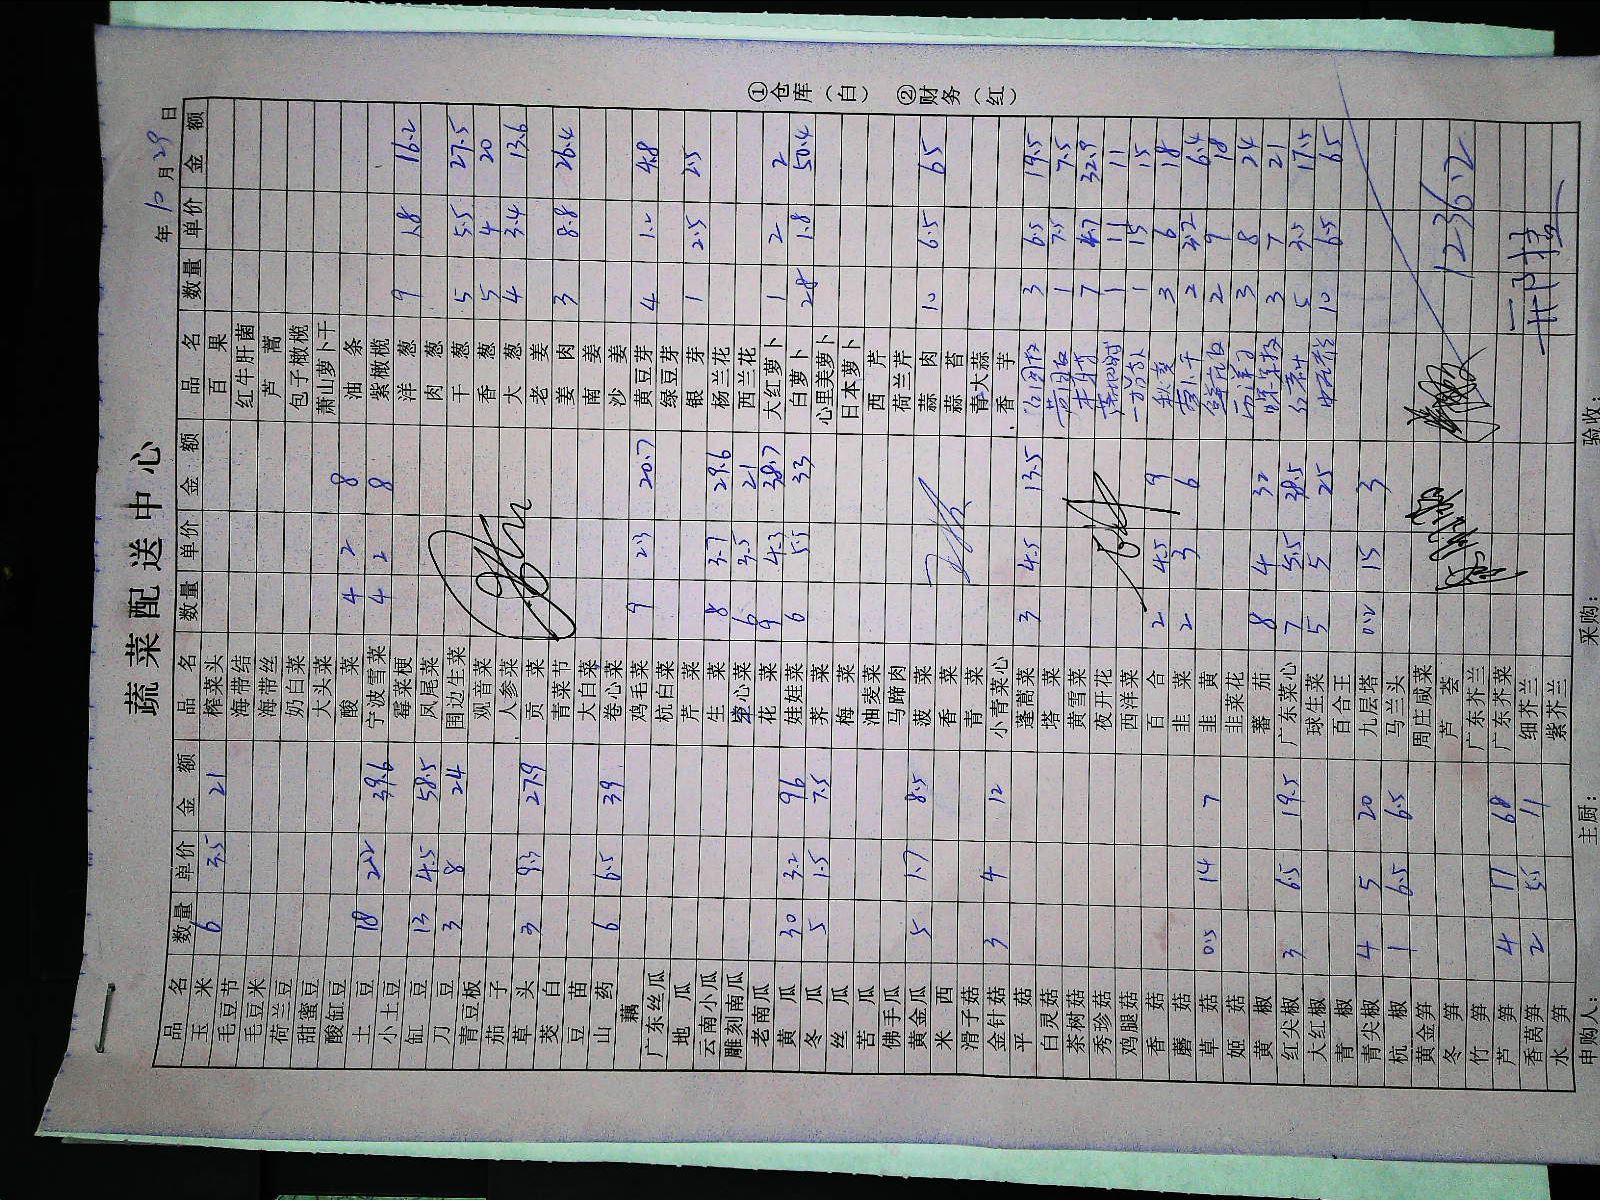 蔬菜配送中心
年 10 月 29 日
品名 数量 单价 金额 品名 数量 单价 金额 品名 数量 单价 金额
玉米 6 3.5 21 榨菜头 百果
毛豆节 海带结 红牛肝菌
毛豆米 海带丝 芦蒿
荷兰豆 奶白菜 包子橄榄
甜蜜豆 大头菜 萧山萝卜干
酸豇豆 酸菜 4 2 8 油条
土豆 18 2.2 39.6 宁波雪菜 4 2 8 紫橄榄
小土豆 霉菜梗 洋葱 9 1.8 16.2
缸豆 13 4.5 58.5 凤尾菜 肉葱
刀豆 3 8 24 围边生菜 干葱 5 5.5 27.5
青豆板 观音菜 香葱 5 4 20
茄子 人参菜 大葱 4 3.4 13.6
草头 3 9.3 27.9 贡菜 老姜
茭白 青菜节 姜肉 3 8.8 26.4
豆苗 大白菜 南姜
山药 6 6.5 39 卷心菜 沙姜
藕 鸡毛菜 9 2.3 20.7 黄豆芽 4 1.2 4.8
广东丝瓜 杭白菜 绿豆芽
地瓜 芹菜 银芽 1 2.5 2.5
云南小瓜 生菜 8 3.7 29.6 杨兰花
雕刻南瓜 空心菜 6 3.5 21 西兰花
老南瓜 花菜 9 4.3 38.7 大红萝卜 1 2 2
黄瓜 30 3.2 96 娃娃菜 6 5.5 33 白萝卜 28 1.8 50.4
冬瓜 5 1.5 7.5 荠菜 心里美萝卜
丝瓜 梅菜 日本萝卜
苦瓜 油麦菜 西芹
佛手瓜 马蹄肉 荷兰芹
黄金瓜 5 1.7 8.5 菠菜 蒜肉 10 6.5 65
米西 香菜 蒜苔
滑子菇 青菜 青大蒜
金针菇 3 4 12 小青菜心 香芋
平菇 蓬蒿菜 3 4.5 13.5 3 6.5 19.5
白灵菇 塔菜 1 7.5 7.5
茶树菇 黄雪菜 7 4.7 32.9
秀珍菇 夜开花 1 11 11
鸡腿菇 西洋菜 1 15 15
香菇 百合 2 4.5 9 3 6 18
蘑菇 韭菜 2 3 6 2 3.2 6.4
草菇 0.5 14 7 韭黄 2 9 18
姬菇 韭菜花 3 8 24
黄椒 蕃茄 8 4 32 3 7 21
红尖椒 3 6.5 19.5 广东菜心 7 5.5 38.5 5 3.5 17.5
大红椒 球生菜 5 5 25 10 6.5 65
青椒 百合王
青尖椒 4 5 20 九层塔 0.2 15 3
杭椒 1 6.5 6.5 马兰头
黄金笋 周庄咸菜
冬笋 芦荟 1236.2
竹笋 广东芥兰
芦笋 4 17 68 广东芥菜
香莴笋 2 5.5 11 细芥兰
水笋 紫芥兰
申购人： 主厨： 采购： 验收：
①仓库（白） ②财务（红）